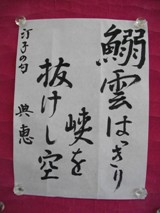 鰯雲はっきり
峡を
抜けし空
汀子の句
典恵